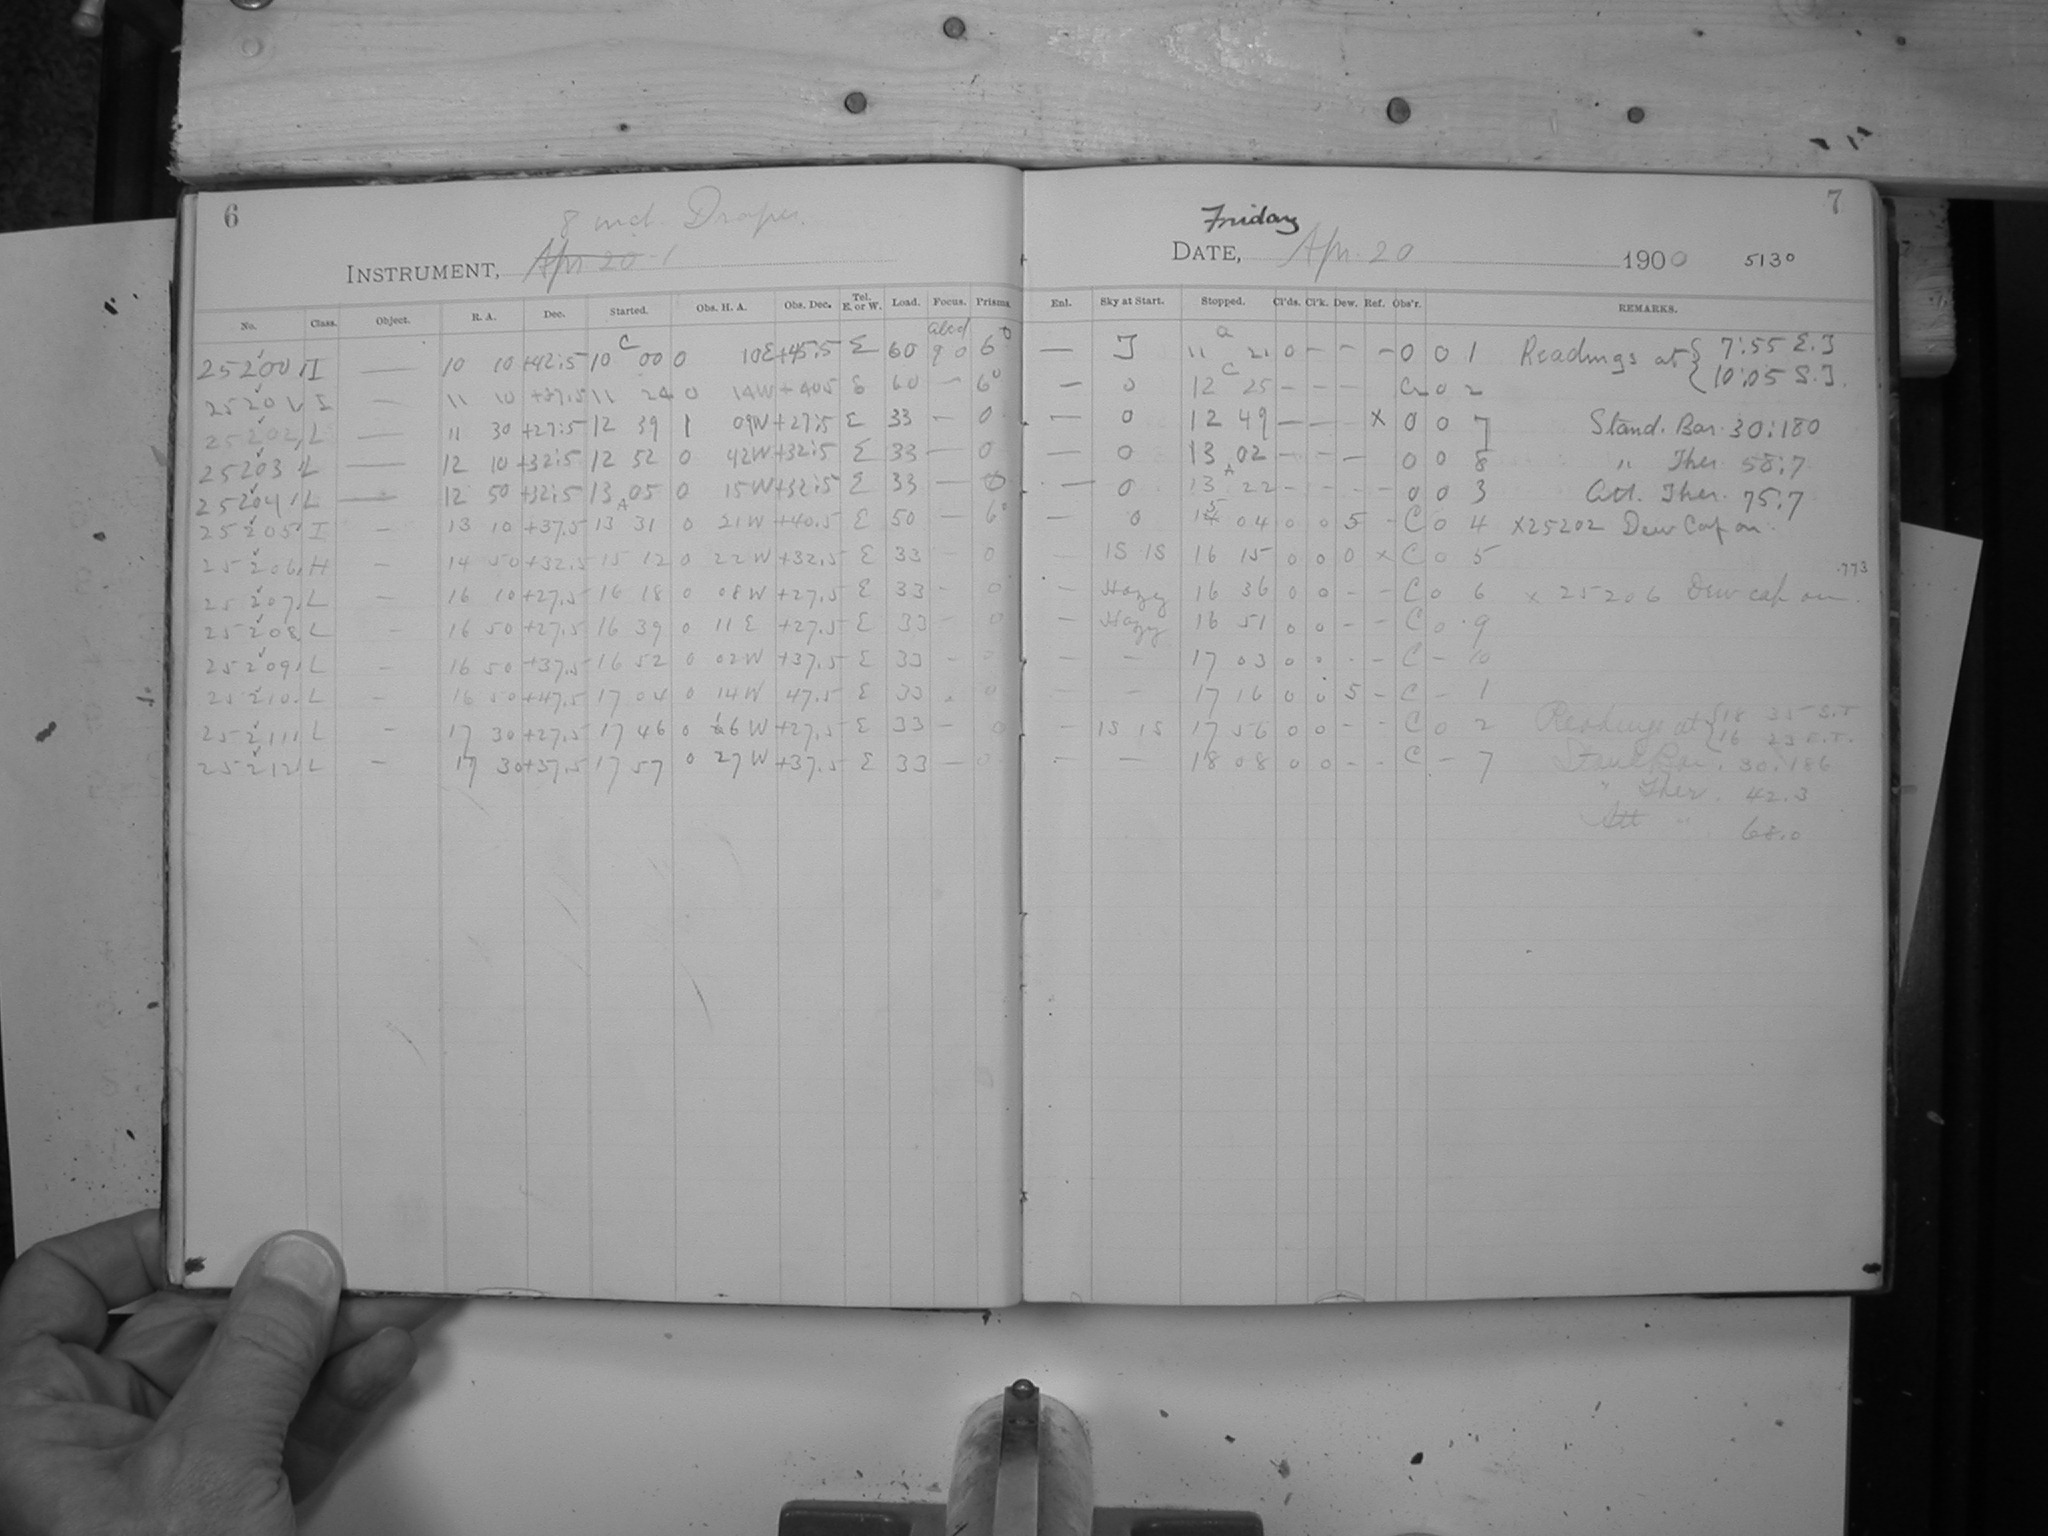 6
8 inch Draper
INSTRUMENT, Apr 20
No. Class. Object. R. A. Dec. Started. Obs. H. A. Obs. Dec. Tel. E. or W. Load. Focus. Prisms.
25200 I — 10 10 +42.5 10 C 00 0 10E +45.5 E 60 abcd 90 6°
25201 I — 11 10 +37.5 11 24 0 14W +40.5 E 60 — 6°
25202 L — 11 30 +27.5 12 39 1 09W +27.5 E 33 — 0
25203 L — 12 10 +32.5 12 52 0 42W +32.5 E 33 — 0
25204 L — 12 50 +32.5 13 05 0 15W +32.5 E 33 — 0
25205 I — 13 10 +37.5 13 A 31 0 21W +40.5 E 50 — 6°
25206 H — 14 50 +32.5 15 12 0 22W +32.5 E 33 - 0
25207 L — 16 10 +27.5 16 18 0 08W +27.5 E 33 - 0
25208 L - 16 50 +27.5 16 39 0 11E +27.5 E 33 - 0
25209 L - 16 50 +37.5 16 52 0 02W +37.5 E 33 - 0
25210 L - 16 50 +47.5 17 04 0 14W 47.5 E 33 - 0
25211 L - 17 30 +27.5 17 46 0 16W +27.5 E 33 - 0
25212 L - 17 30 +37.5 17 57 0 27W +37.5 E 33 — 0
7
Friday
DATE, Apr. 20 1900 5130
Enl. Sky at Start. Stopped. Cl'ds. Cl'k. Dew. Ref. Obs'r. REMARKS.
— I 11 a 21 0 - - - 0 0 1 Readings at { 7:55 E.T
10:05 S.T.
— 0 12 C 25 - - - C 0 2
— 0 12 49 — — x 0 0 7 Stand. Bar. 30:180
— 0 13 02 - - — 0 0 8 " Ther. 58:7
— 0 13 A 22 - - - - 0 0 3 Att. Ther. 75:7
— 0 15 04 0 0 5 - C 0 4 x25202 Dew Cap on.
— 1S 1S 16 15 0 0 0 x C 0 5
.773
— Hazy 16 36 0 0 - - C 0 6 x 25206 Dew cap on.
— Hazy 16 51 0 0 - - C 0 9
— — 17 03 0 0 - - C - 10
— - 17 16 0 0 5 - C - 1
— 1S 1S 17 56 0 0 - - C 0 2 Readings at { 18 35 S.T.
16 23 E.T.
— — 18 08 0 0 - - C - 7 Stand Bar. 30.186
" Ther. 42.3
Att " 68.0